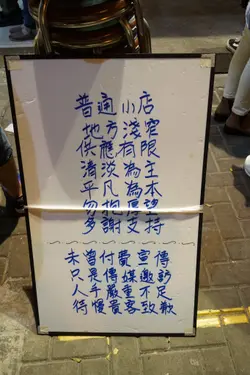 普通小店
地方淺窄
供應有限
清淡為主
平凡為本
勿抱厚望
多謝支持
未曾付費宣傳
只是傳媒邀訪
人手嚴重不足
待慢貴客致歉